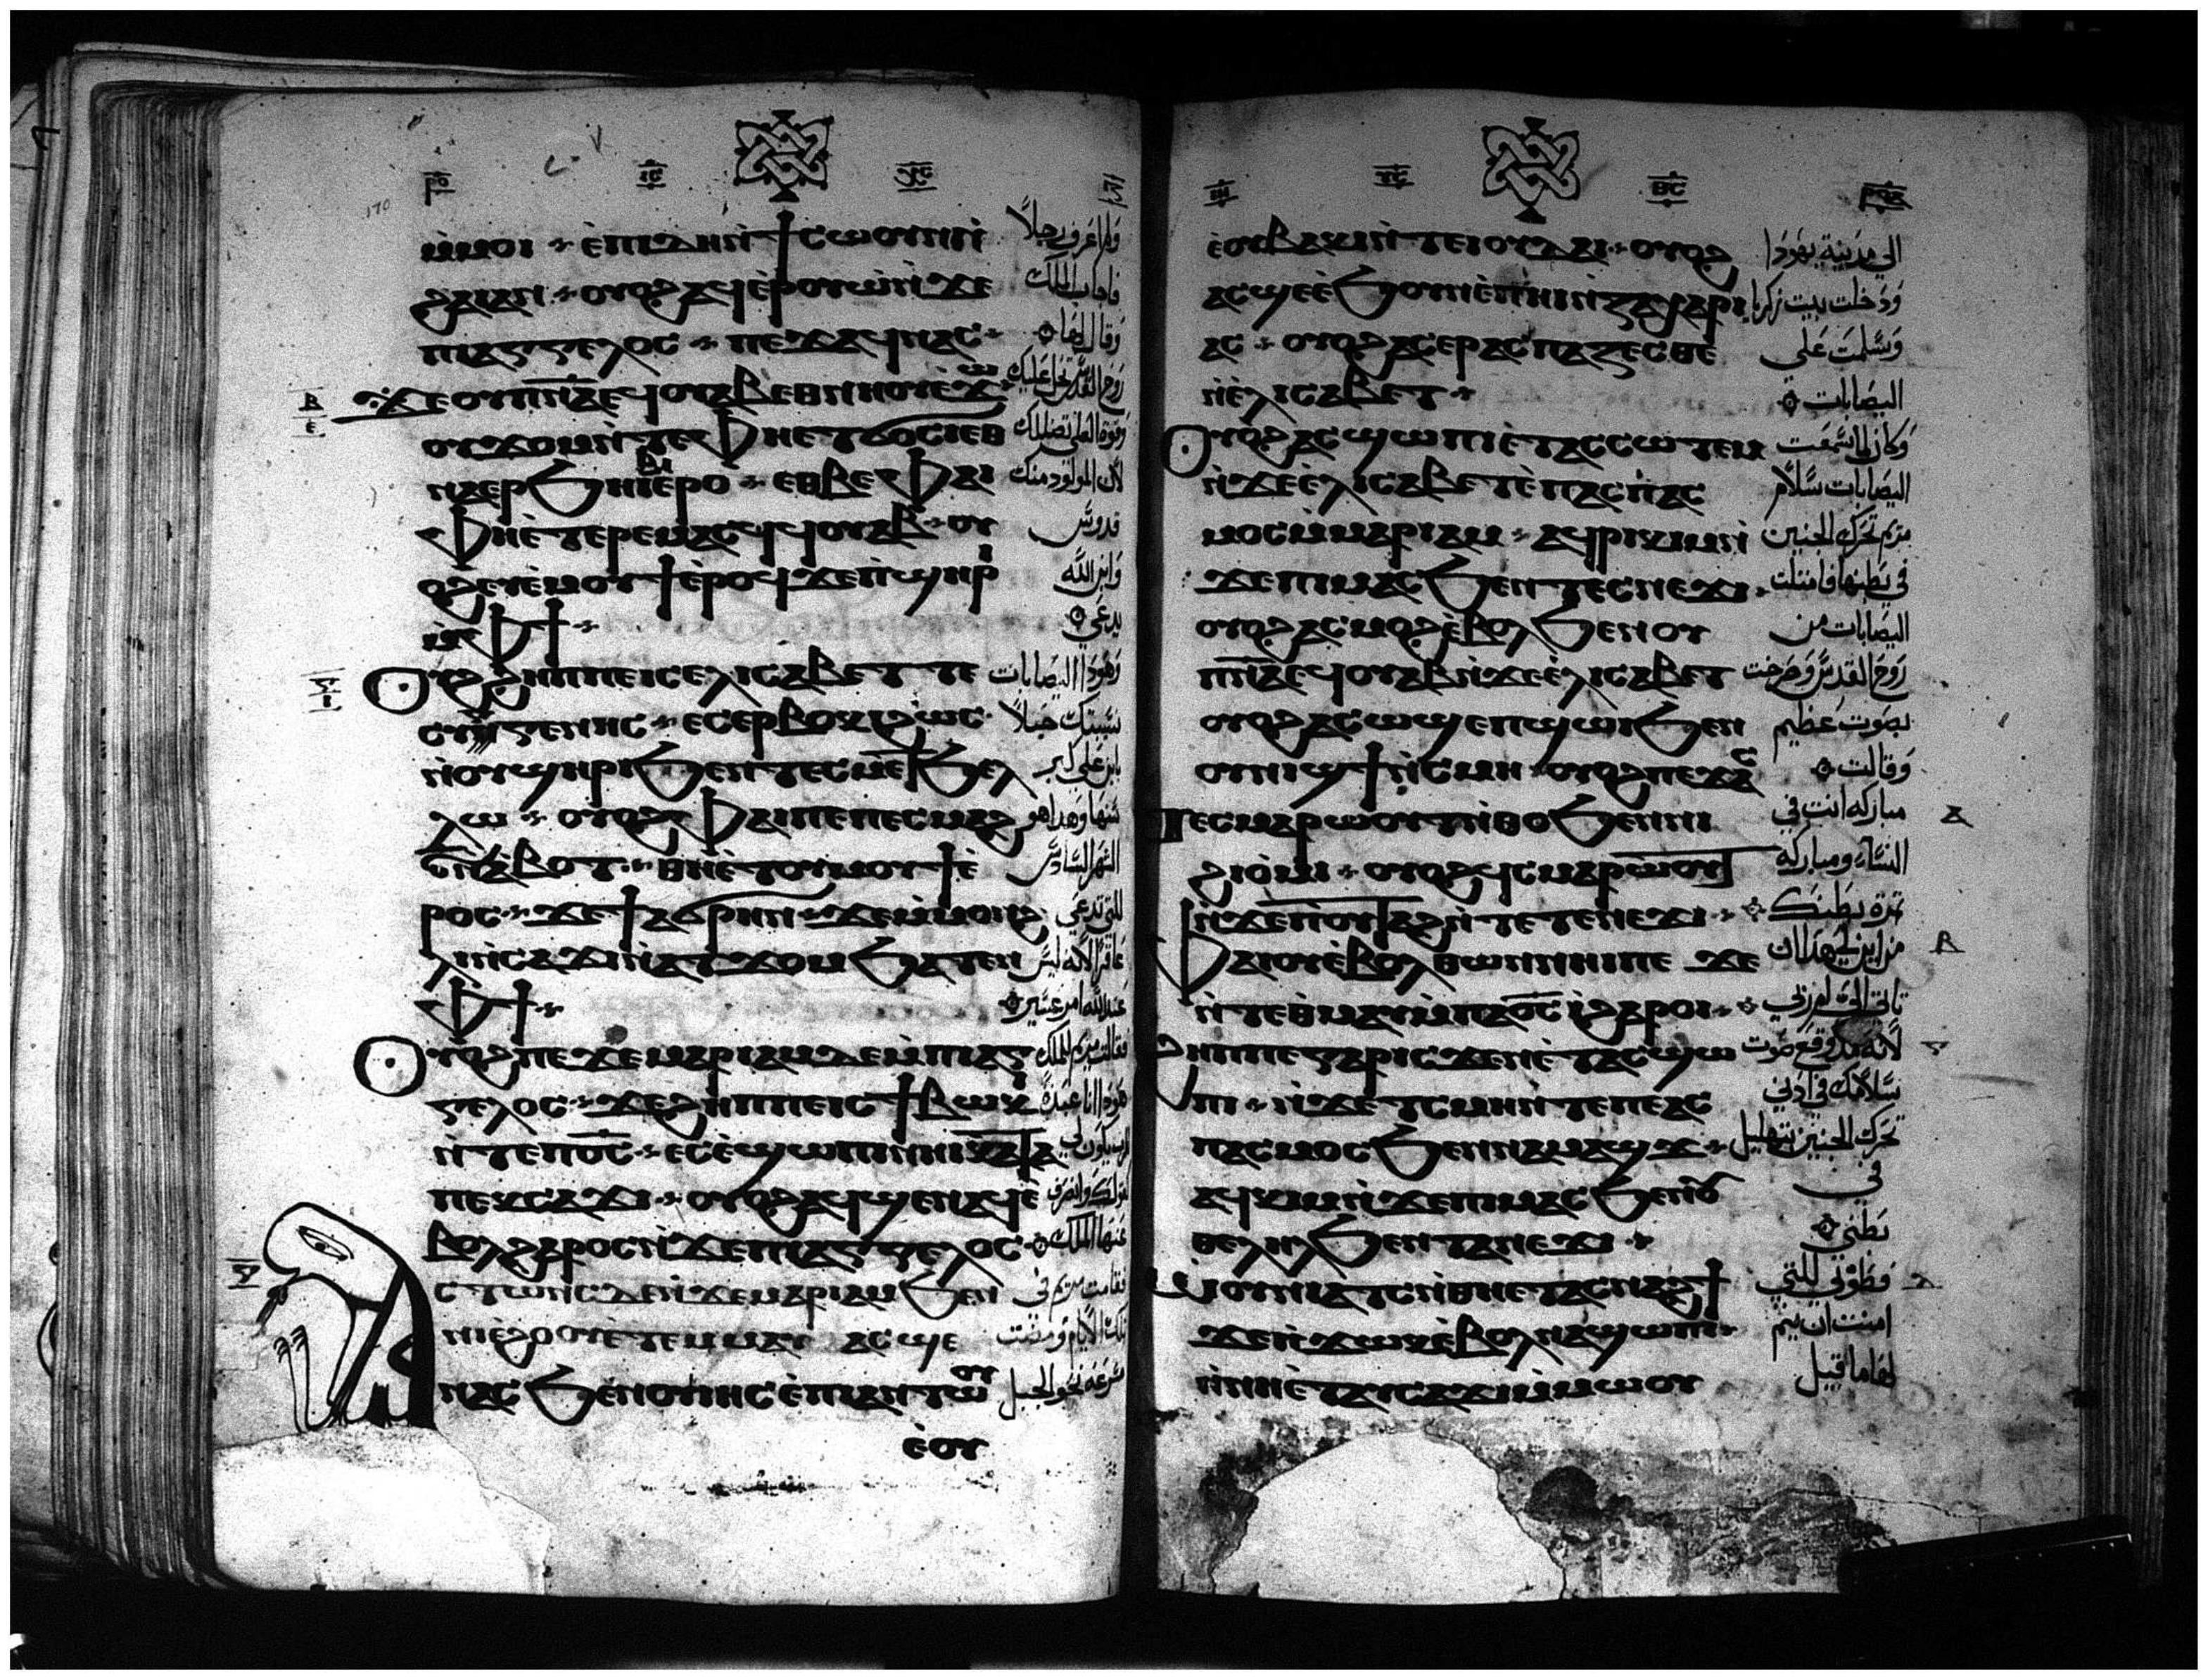 ⲣⲟ ⲓ̅ⲥ̅ ⲭ̅ⲥ̅
ⲙ̀ⲙⲟⲓ ⲉ̀ⲡⲓⲇⲏ ⲛ̀ϯⲥⲱⲟⲩⲛ ⲛ̀
ϩⲗⲓ ⲁⲛ ⲟⲩⲟϩ ⲁϥⲉ̀ⲣⲟⲩⲱ̀ ⲛ̀ϫⲉ
ⲡⲓⲁⲅⲅⲉⲗⲟⲥ ⲡⲉϫⲁϥ ⲛⲁⲥ
ϫⲉ ⲟⲩⲡ̅ⲛ̅ⲁ̅ ⲉϥⲟⲩⲁⲃ ⲉⲑⲛⲏⲟⲩ ⲉ̀ϫⲱ
ⲟⲩϫⲟⲙ ⲛ̀ⲧⲉ ⲫⲏⲉⲧϭⲟⲥⲓ ⲉⲑ
ⲛⲁⲉⲣϧⲏⲓⲃⲓ ⲉ̀ⲣⲟ ⲉⲑⲃⲉ ⲫⲁⲓ
ⲫⲏⲉ̀ⲧⲉⲣⲉⲙⲁⲥϥ ϥⲟⲩⲁⲃ ⲟⲩ
ⲟϩ ⲉⲩⲉ̀ⲙⲟⲩϯ ⲉ̀ⲣⲟϥ ϫⲉ ⲡ̀ϣⲏⲣⲓ
ⲙ̀ⲫϯ
ⲟⲩⲟϩ ϩⲏⲡⲡⲉ ⲓⲥ ⲉⲗⲓⲥⲁⲃⲉⲧ ⲧⲉ
ⲥⲩⲅⲅⲉⲛⲏⲥ ⲉⲥⲉⲣⲃⲟⲕⲓ ϩⲱⲥ
ⲛ̀ⲟⲩϣⲏⲣⲓ ϧⲉⲛ ⲧⲉⲥⲙⲉⲧϧⲉⲗ
ⲗⲱ ⲟⲩⲟϩ ⲫⲁⲓ ⲡⲉ ⲡⲉⲥⲙⲁϩ
ⲋ̅ ⲛ̀ⲁⲃⲟⲧ ⲑⲏⲉ̀ⲧⲟⲩⲙⲟⲩϯ ⲉ̀
ⲣⲟⲥ ϫⲉ ϯⲁϭⲣⲏⲛ ϫⲉ ⲙ̀ⲙⲟⲛ ϩ
ⲗⲓ ⲛ̀ⲥⲁϫⲓ ⲛ̀ⲁⲧϫⲟⲙ ϧⲁⲧⲉⲛ
ⲫϯ
ⲟⲩⲟϩ ⲡⲉϫⲉ ⲙⲁⲣⲓⲁⲙ ⲇⲉ ⲙ̀ⲡⲓⲁⲅ
ⲅⲉⲗⲟⲥ ϫⲉ ϩⲏⲡⲡⲉ ⲓⲥ ϯⲃⲱⲕⲓ
ⲛ̀ⲧⲉ ⲡ̅ⲟ̅ⲥ̅ ⲉⲥⲉ̀ϣⲱⲡⲓ ⲛⲏⲓ ⲕⲁⲧⲁ
ⲡⲉⲕⲥⲁϫⲓ ⲟⲩⲟϩ ⲁϥϣⲉ ⲛⲁϥ ⲉ̀
ⲃⲟⲗ ϩⲁⲣⲟⲥ ⲛ̀ϫⲉ ⲡⲓⲁⲅⲅⲉⲗⲟⲥ
ⲥⲧⲱⲛⲥ ⲇⲉ ⲛ̀ϫⲉ ⲙⲁⲣⲓⲁⲙ ϧⲉⲛ
ⲛⲓⲉ̀ϩⲟⲟⲩ ⲉ̀ⲧⲉⲙⲙⲁⲩ ⲁⲥϣⲉ
ⲛⲁⲥ ϧⲉⲛ ⲟⲩⲓⲏⲥ ⲉ̀ⲡⲓⲁⲛⲧⲱⲟⲩ
ⲉ̀ⲟⲩ
ولم اعرف رجلاً
فاجاب الملاك
وقال لها
روح القدس تحل عليك
وقوة العلي تضللك
لان المولود منك
قدوس
وابن الله
يدعى
وهوذا اليصابات
نسيبتك حبلاً
بابن على كبر
سنها وهذا هو
الشهر السادس
للتي تدعى
عاقراً لانه ليس
عند الله امر عسير
فقالت مريم للملاك
هوذا انا عبدة
الرب يكون لي
كقولك وانصرف
عنها الملاك
فقامت مريم في
تلك الايام ومضت
مسرعه نحو الجبل
ⲓ̅ⲥ̅ ⲑ̅ⲥ̅
ⲉ̀ⲟⲩⲃⲁⲕⲓ ⲛ̀ⲧⲉ ⲓⲟⲩⲇⲁ ⲟⲩⲟϩ
ⲁⲥϣⲉ ⲉ̀ϧⲟⲩⲛ ⲉ̀ⲡⲏⲓ ⲛ̀ⲍⲁⲭⲁⲣⲓ
ⲁⲥ ⲟⲩⲟϩ ⲁⲥⲉⲣⲁⲥⲡⲁⲍⲉⲥⲑⲉ
ⲛ̀ⲉ̀ⲗⲓⲥⲁⲃⲉⲧ
ⲟⲩⲟϩ ⲁⲥϣⲱⲡⲓ ⲉ̀ⲧⲁⲥⲥⲱⲧⲉⲙ
ⲛ̀ϫⲉ ⲉ̀ⲗⲓⲥⲁⲃⲉⲧ ⲉ̀ⲡⲁⲥⲡⲁⲥ
ⲙⲟⲥ ⲙ̀ⲙⲁⲣⲓⲁⲙ ⲁϥⲣⲓⲕⲓⲙ ⲛ̀
ϫⲉ ⲡⲓⲙⲁⲥ ϧⲉⲛ ⲧⲉⲥⲛⲉϫⲓ
ⲟⲩⲟϩ ⲁⲥⲙⲟϩ ⲉⲃⲟⲗ ϧⲉⲛ ⲟⲩ
ⲡ̅ⲛ̅ⲁ̅ ⲉϥⲟⲩⲁⲃ ⲛ̀ϫⲉ ⲉ̀ⲗⲓⲥⲁⲃⲉⲧ
ⲟⲩⲟϩ ⲁⲥⲱϣ ⲉⲡϣⲱⲓ ϧⲉⲛ
ⲟⲩⲛⲓϣϯ ⲛ̀ⲥⲙⲏ ⲟⲩⲟϩ ⲡⲉϫⲁⲥ
ⲧⲉⲥⲙⲁⲣⲱⲟⲩⲧ ⲛ̀ⲑⲟ ϧⲉⲛ ⲛⲓ
ϩⲓⲟ̀ⲙⲓ ⲟⲩⲟϩ ϥⲥⲙⲁⲣⲱⲟⲩⲧ
ⲛ̀ϫⲉ ⲡ̀ⲟⲩⲧⲁϩ ⲛ̀ⲧⲉ ⲧⲉⲛⲉϫⲓ
ⲫⲁⲓ ⲟⲩⲉ̀ⲃⲟⲗ ⲑⲱⲛ ⲛⲏⲓ ⲡⲉ ϫⲉ
ⲛ̀ⲧⲉ ⲑ̀ⲙⲁⲩ ⲙ̀ⲡⲁⲟ̅ⲥ̅ ⲓ̀ ϩⲁⲣⲟⲓ
ϩⲏⲡⲡⲉ ⲅⲁⲣ ⲓⲥϫⲉⲛ ⲉ̀ⲧⲁⲥϣⲱ
ⲡⲓ ⲛ̀ϫⲉ ⲧⲥⲙⲏ ⲛ̀ⲧⲉ ⲡⲉⲁⲥ
ⲡⲁⲥⲙⲟⲥ ϧⲉⲛ ⲛⲁⲙⲁϣϫ
ⲁϥⲕⲓⲙ ⲛ̀ϫⲉ ⲡⲓⲙⲁⲥ ϧⲉⲛ ⲟⲩ
ⲑⲉⲗⲏⲗ ϧⲉⲛ ⲧⲁⲛⲉϫⲓ
ⲱ̀ⲟⲩⲛⲓⲁⲧⲥ ⲛ̀ⲑⲏⲉⲧⲁⲥⲛⲁϩϯ
ϫⲉ ⲛ̀ϫⲱⲕ ⲉ̀ⲃⲟⲗ ⲛⲁϣⲱⲡⲓ
ⲛ̀ⲛⲏⲉ̀ⲧⲁⲩⲥⲁϫⲓ ⲙ̀ⲙⲱⲟⲩ
الى مدينة يهودا
ودخلت بيت زكريا
وسلمت على
اليصابات
وكان لما سمعت
اليصابات سلام
مريم تحرك الجنين
في بطنها فامتلت
اليصابات من
روح القدس وصرخت
بصوت عظيم
وقالت
مباركه انت في
النساء ومباركه
ثمرة بطنك
من اين لي هذا ان
تاتي الي ام ربي
لانه مذ وقع صوت
سلامك في اذني
تحرك الجنين بتهليل
في
بطني
فطوبى للتي
امنت ان يتم
لها ما قيل